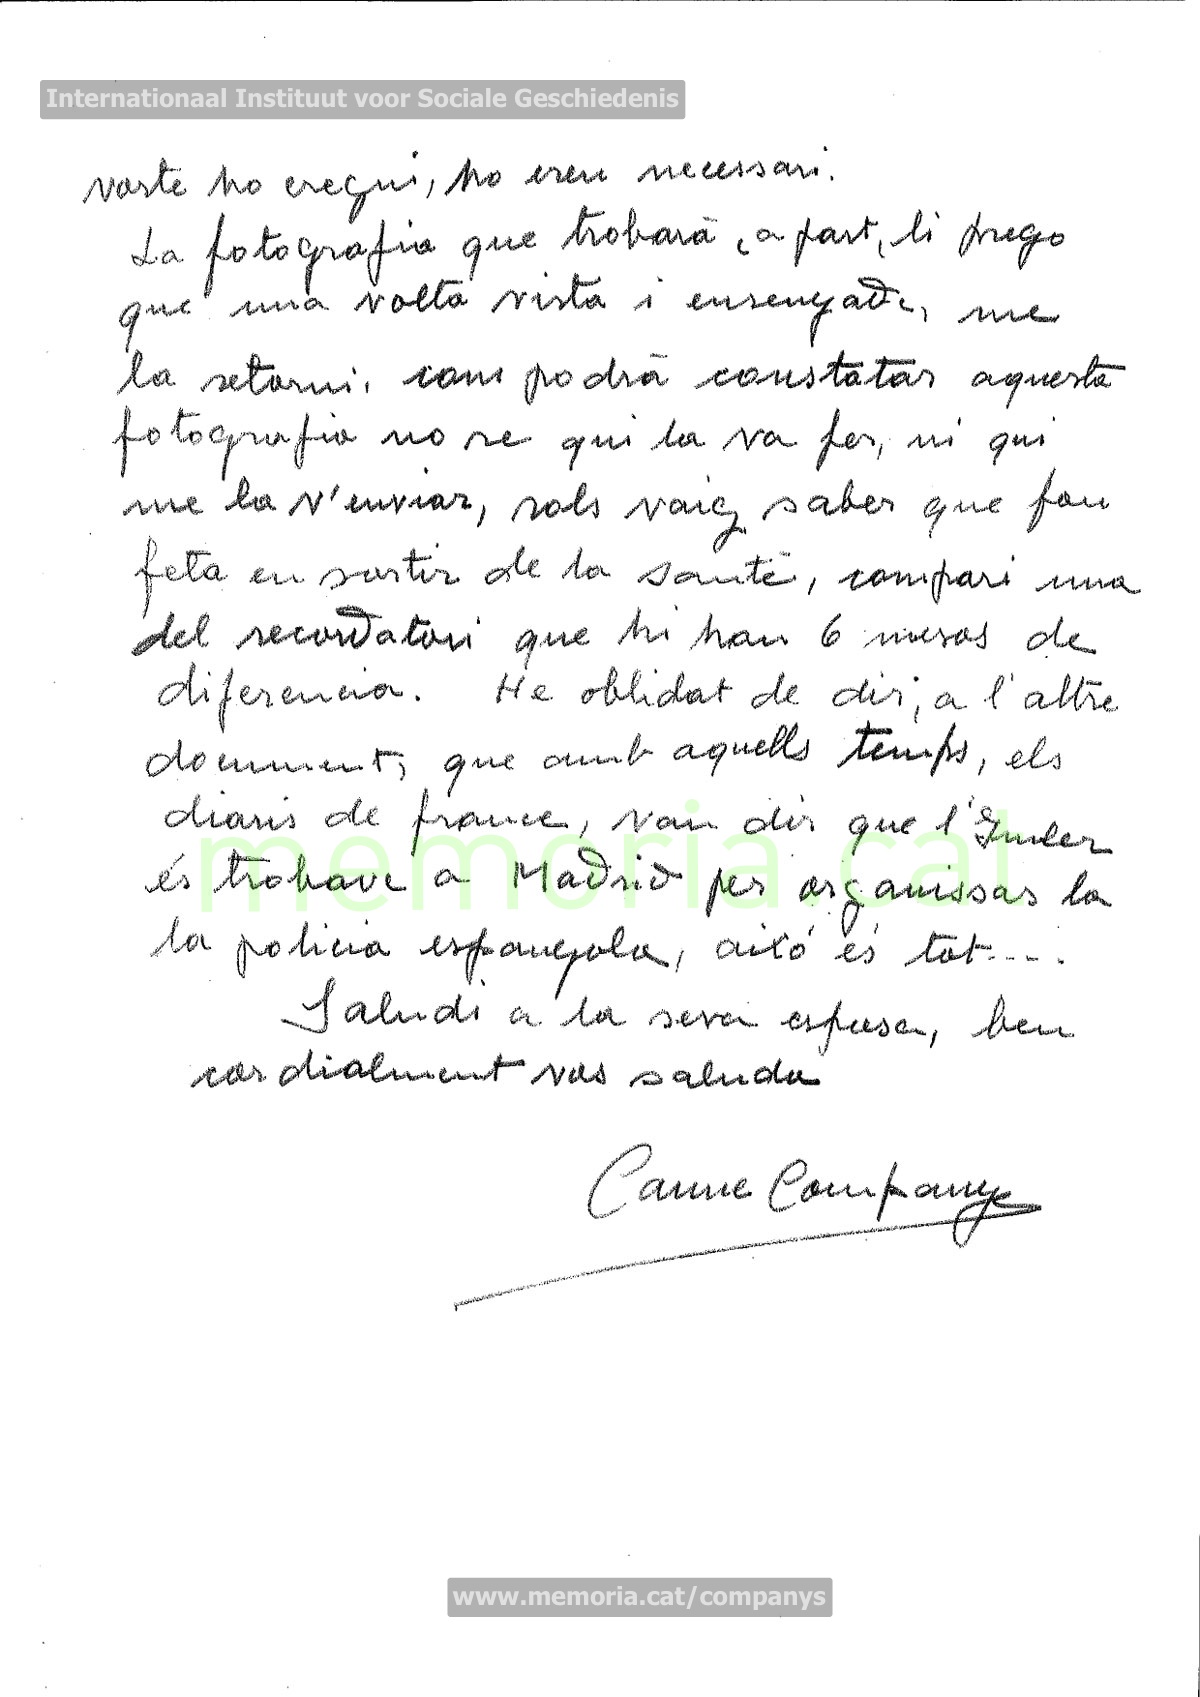 Internationaal Instituut voor Sociale Geschiedenis
vostè ho cregui, ho creu necessari.
La fotografia que trobarà, a part, li prego
que una volta vista i ensenyada, me
la retorni. com podrà constatar aquesta
fotografia no se qui la va fer, ni qui
me la v'enviar, sols vaig saber que fou
feta en sortir de la santé, compari una
del recordatori que hi han 6 mesos de
diferencia. He oblidat de dir, a l'altre
document, que amb aquells temps, els
diaris de france, van dir que l'
és trobave a Madrid per organissar la
la policia espanyola, aixó és tot....
Saludi a la seva esposa, ben
cordialment vos saluda
Carme Companys
memoria.cat
www.memoria.cat/companys